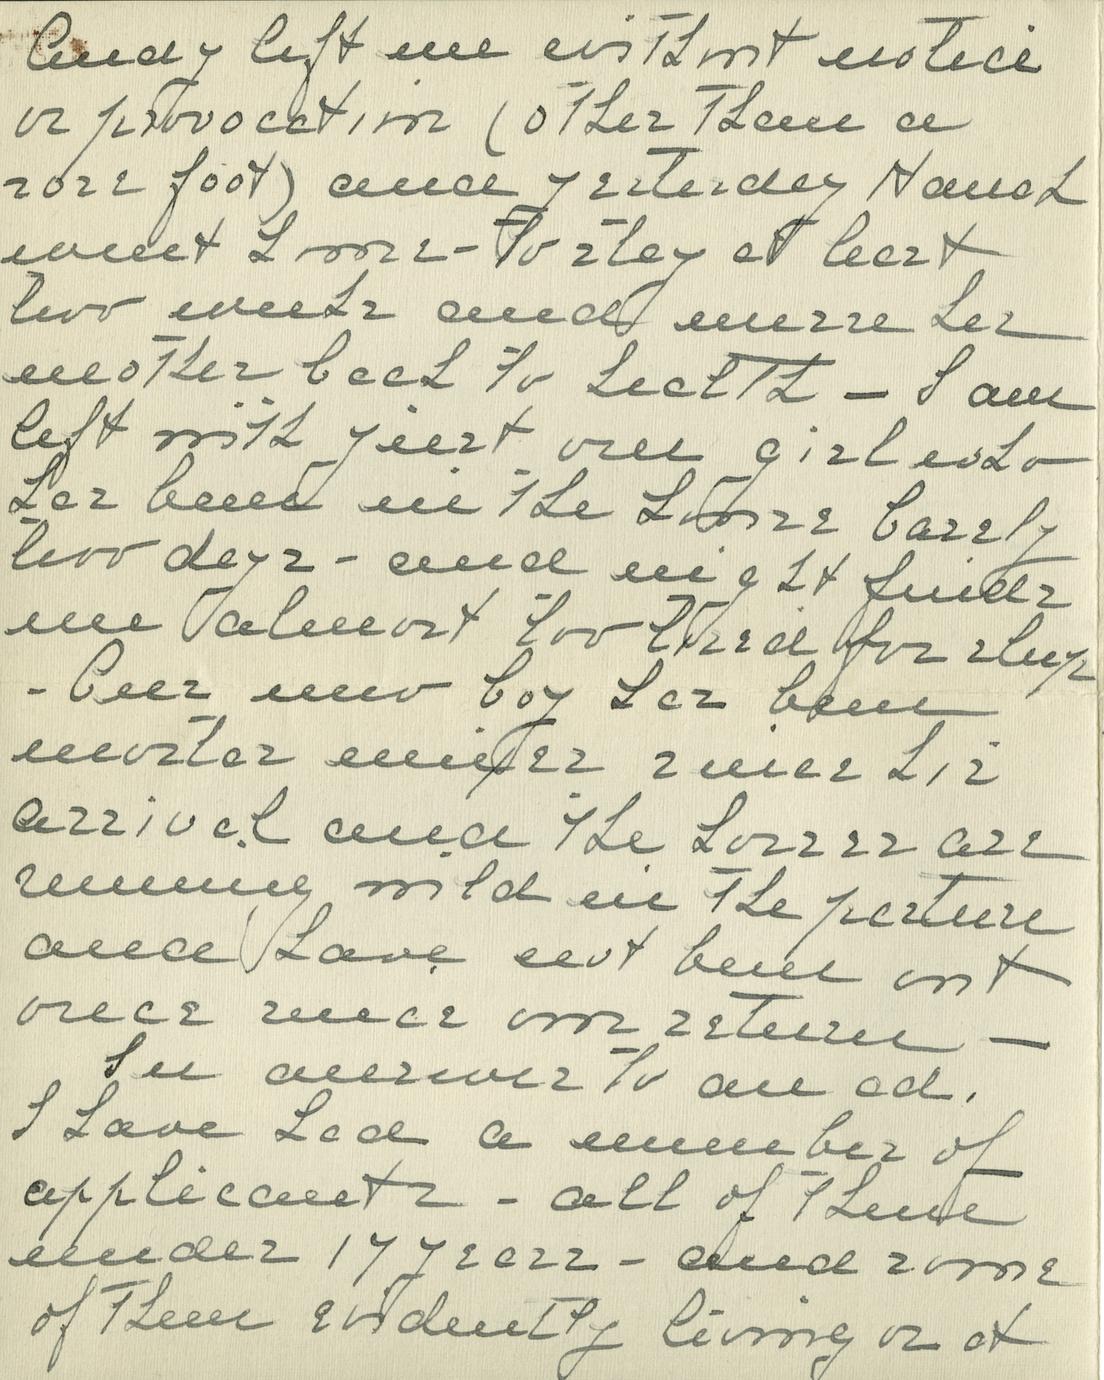 Cindy left me without notice
or provocation (other than a
sore foot) and yesterday Hanah
went home - to stay at least
two weeks and nurse her
mother back to health — I am
left with just one girl who
has been in the house barely
two days - and night finds
me almost too tired for sleep
- Our new boy has been
master minus since his
arrival and the horses are
running wild in the pasture
and have not been out
once since our return —
In answer to an ad.
I have had a number of
applicants - all of them
under 17 years - and some
of them evidently living or at